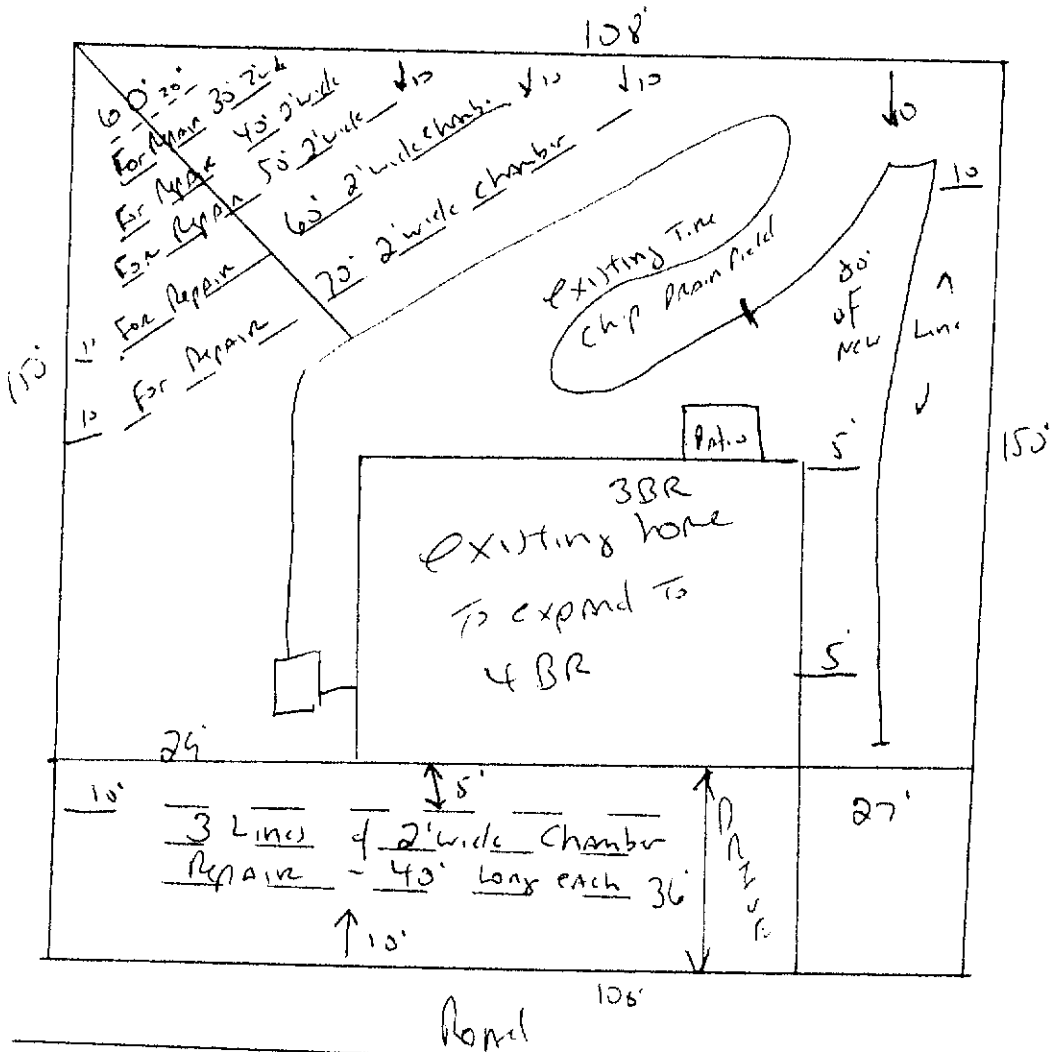 108'
60' 20'
For Repair 30' 2' wide
For Repair 40' 2' wide
For Repair 50' 2' wide
For Repair 60' 2' wide chamber
For Repair 70' 2' wide chamber
↓10 ↓10 ↓10
↓10
10
150'
1'
10
existing Tire
Chip Drain Field
80'
of
New Line
Patio
5'
150'
3BR
existing home
To expand To
4 BR
5'
24'
10'
5'
3 Lines of 2' wide Chamber
Repair - 40' Long each 36'
10'
DRIVE
27'
108'
Road